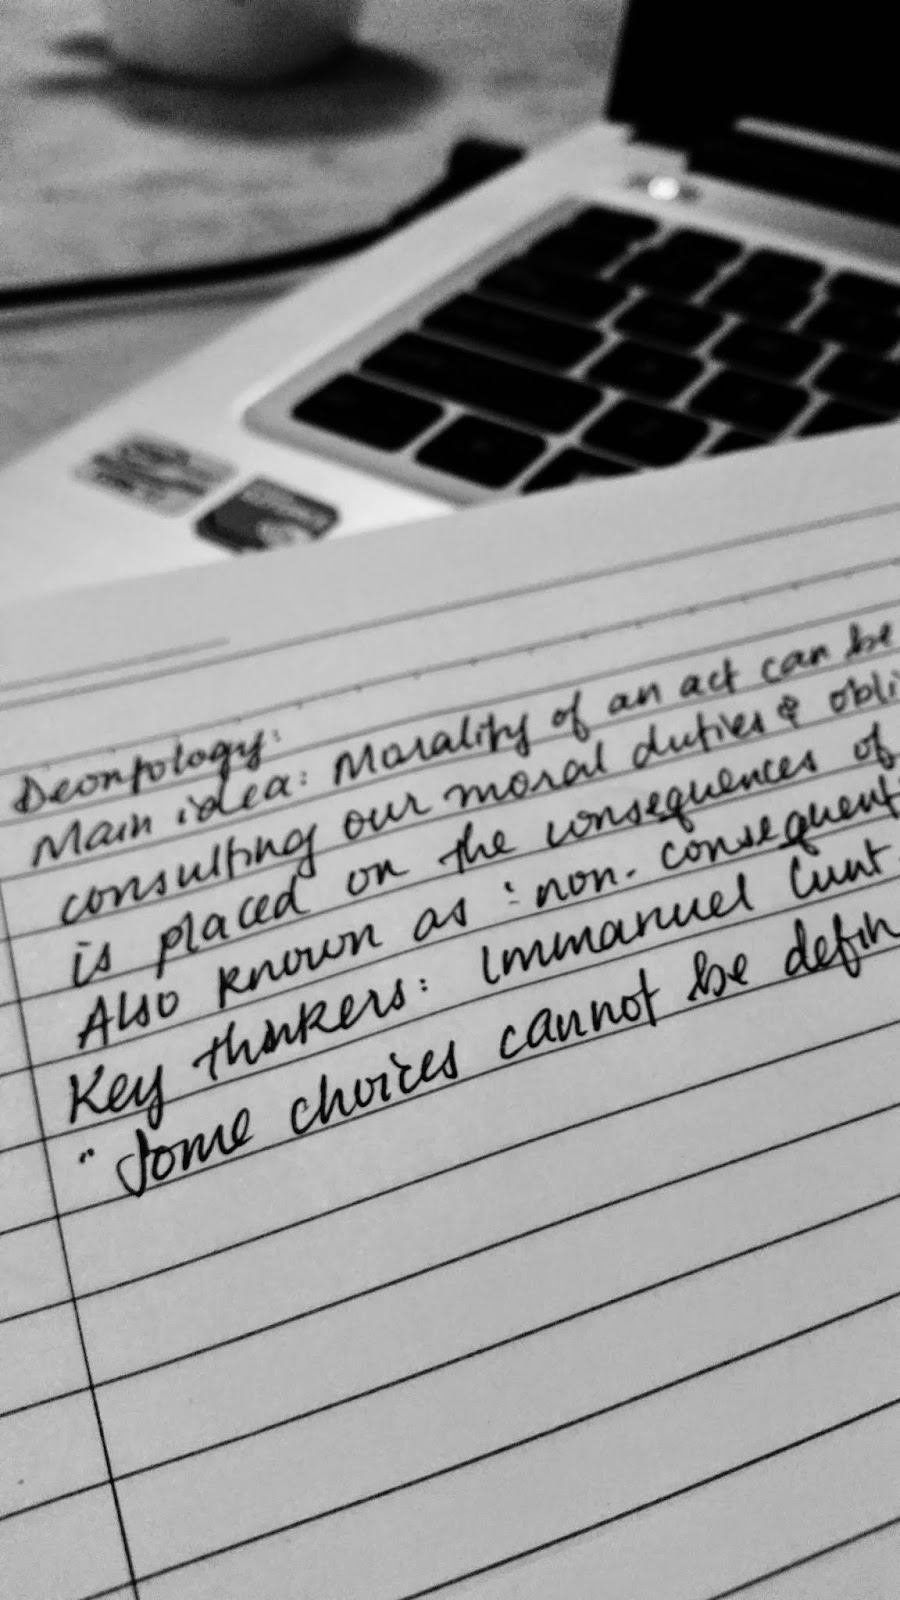 Deontology:
Main idea: Morality of an act can be
consulting our moral duties & obli
is placed on the consequences of
Also known as : non-consequent
Key thinkers: Immanuel Cunt
" Some choices cannot be defin